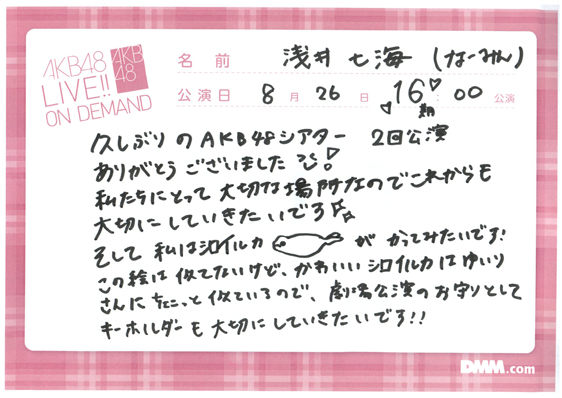 AKB48
LIVE!!
ON DEMAND
AKB
48
名前 浅井七海 (なーみん)
公演日 8月26日 16:00公演
期
久しぶりのAKB48シアター 2回公演
ありがとうございました!
私たちにとって大切な場所なのでこれからも
大切にしていきたいです
そして私はシロイルカ が かってみたいです!
この絵は似てないけど、かわいいシロイルカはゆいり
さんにちょこっと似ているので、劇場公演のお守りとして
キーホルダーも大切にしていきたいです!!
DMM.com